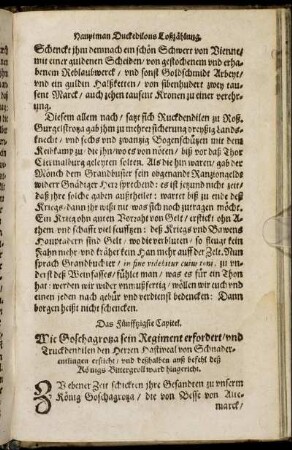 Hauptman Duckedilons Loßzählung.
Schenckt jhm demnach ein schön Schwert von Vienne/
mit einer guldenen Scheiden/ von gestochenem vnd erha-
benem Reblaubwerck/ vnd sonst Goldschmidt Arbeyt/
vnd ein gulden Halßketten/ von sibenhundert zwey tau-
sent Marck/ auch zehen tausent Kronen zu einer verehr-
ung.
Diesem allem nach/ satzt sich Ruckdendilen zu Roß.
Gurgelstrotza gab jhm zu mehrer sicherung dreyßig Lands-
knecht/ vnd sechs vnd zwantzig Bogenschützen mit dem
Reißkamp zu/ die jhn/ wo es von nöten/ biß vor daß Thor
Clermalburg geleyten solten. Als die hin waren/ gab der
Mönch dem Grandbusier sein obgenande Rantzongelds
wider: Gnädiger Herr sprechend: es ist jetzund nicht zeit/
daß jhr solche gaben außtheilet: wartet biß zu ende deß
Kriegs/ dann jhr wißt nie was sich noch zutragen möcht.
Ein Krieg ohn guten Vorraht von Gelt/ erstickt ohn A-
them vnd schafft viel seufftzen: deß Kriegs vnd Bawens
Hauptadern sind Gelt/ wo die verbluten/ so fleugt kein
Hahn mehr/ vnd kräht kein Han mehr auff der Zeit. Nun
sprach Grandbuchier/ in fine videbitur cuius toni, zu vn-
derst deß Weinfasses/ fühlet man/ was es für ein Thon
hat: werden wir wider vnmüssertig/ wöllen wir euch vnd
einen jeden nach gebür vnd verdienst bedencken: Dann
borgen heißt nicht schencken.
Das Fünfftzigste Capitel.
Wie Goschagrotza sein Regiment erfordert/ vnd
Truckdendilen den Herzen Hastweal von Schnader-
entlagen ersticht/ vnd deßhalben auß befelh deß
Königs Bittergroll ward hingericht.
ZV ebener Zeit schickten jhre Gesandten zu vnserm
König Goschagrotza/ die von Besse von Alte-
marckt/